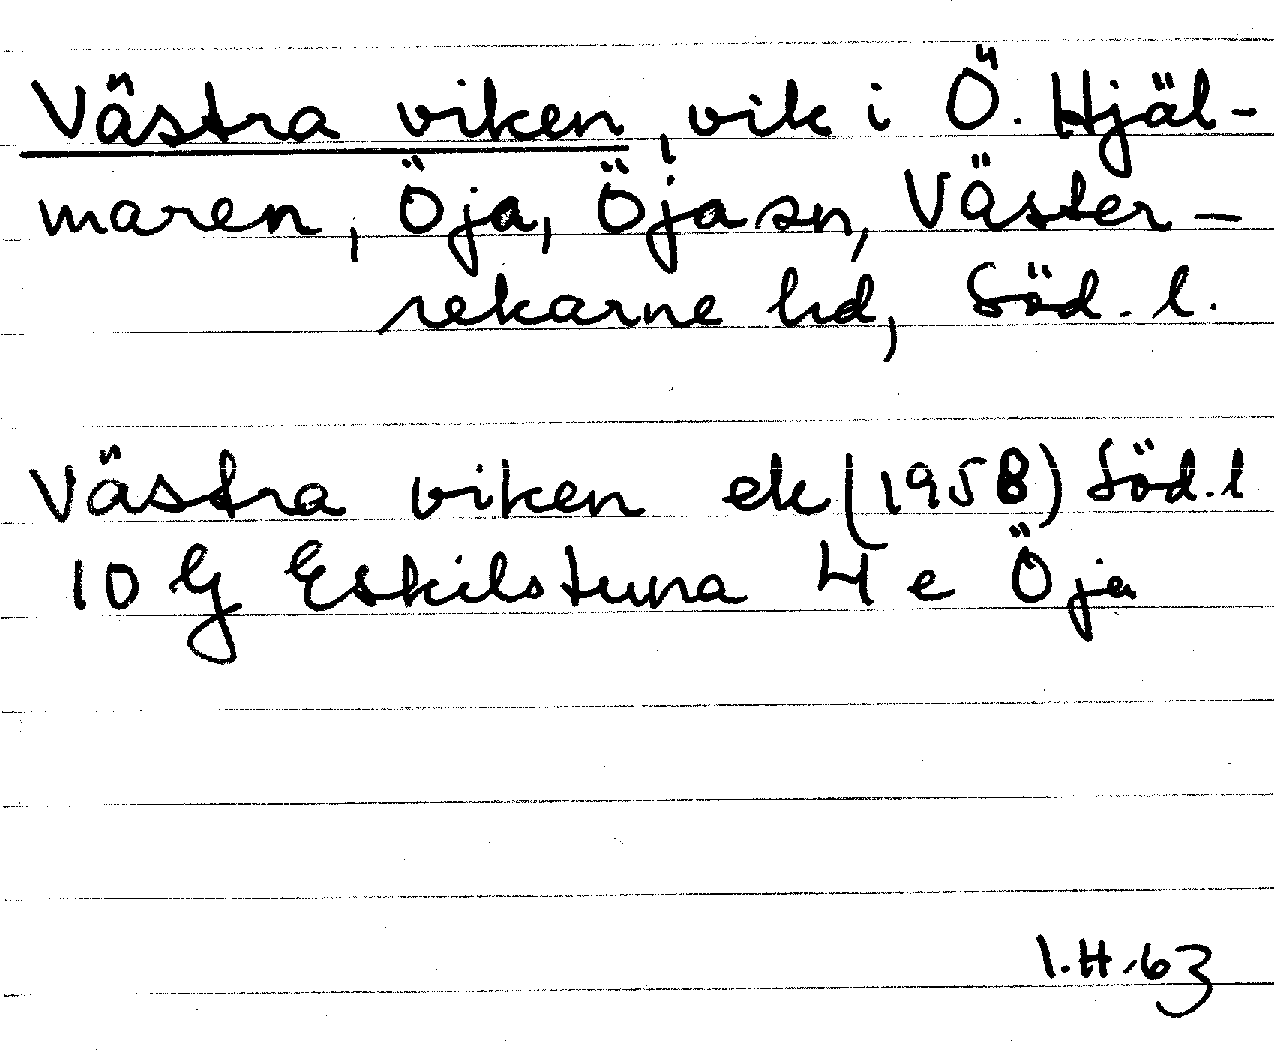 Västra viken, vik i Ö. Hjäl-
maren, Öja, Öja sn, Väster-
rekarne hd, Söd. l.
Västra viken ek (1958) Söd. l
10 G Eskilstuna 4 e Öja
I.H. 63